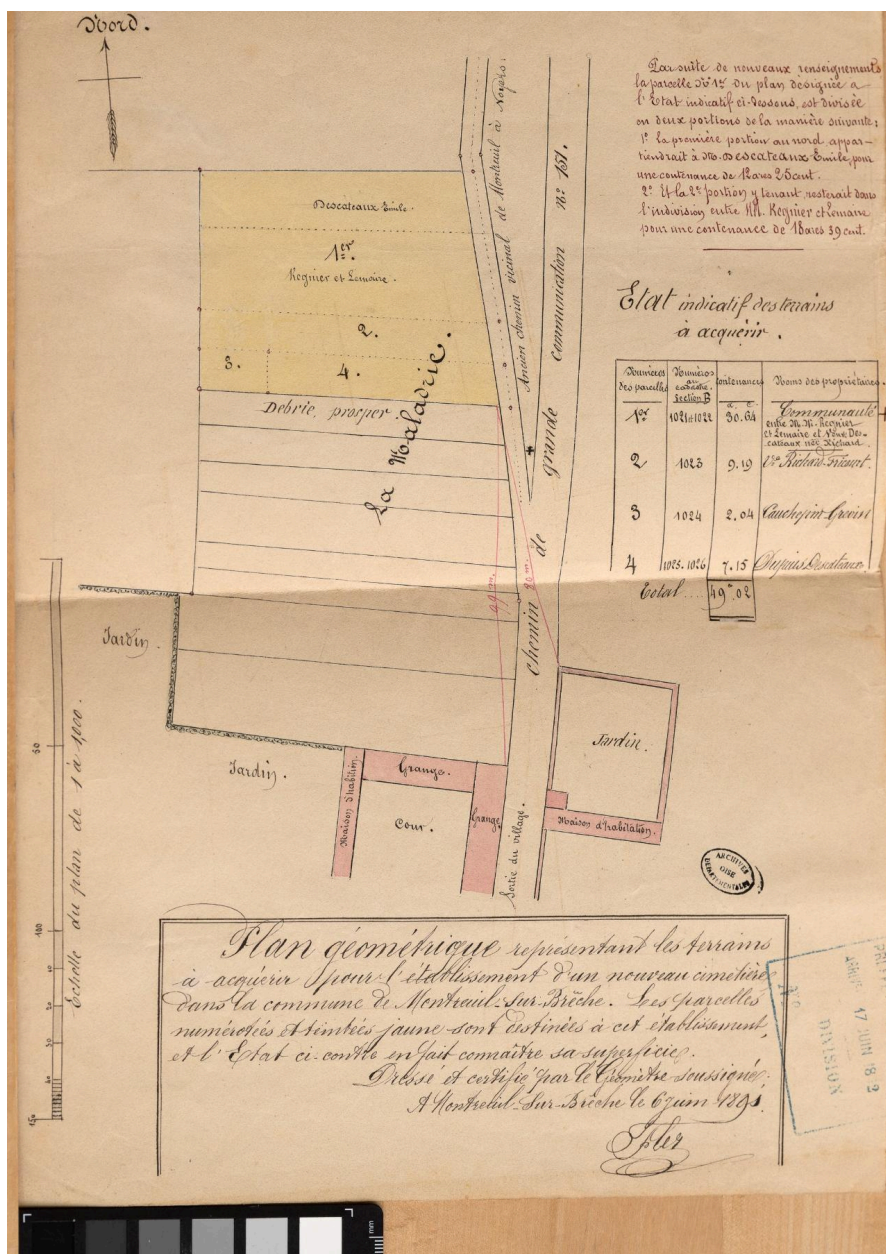 Nord.
Par suite de nouveaux renseignements
la parcelle N° 1er du plan désignée a
l'Etat indicatif ci-dessous, est divisée
en deux portions de la manière suivante:
1° La première portion au nord, appar-
tiendrait à M. Descateaux Émile, pour
une contenance de 12 ares 25 cent.
2° Et la 2e portion y tenant, resterait dans
l'indivision entre MM. Regnier et Lemaire
pour une contenance de 18 ares 39 cent.
Etat indicatif des terrains
à acquérir.
Numéros des parcelles | Numéros au cadastre Section B | Contenances | Noms des propriétaires.
a. c.
1er | 1021 et 1022 | 30.64 | Communauté
entre M. M. Regnier
et Lemaire et Veuve Des-
cateaux née Richard.
2 | 1023 | 9.19 | Vve Richard
3 | 1024 | 2.04
4 | 1025. 1026 | 7.15 | Dupuis Descateaux
Total.... 49a.02
Descateaux Émile.
1er.
Regnier et Lemaire.
2.
3.
4.
Debrie, prosper
La Maladrie.
Ancien chemin vicinal de Montreuil à Noyers
chemin de grande communication N° 151.
99 m.
20 m.
Jardin.
Jardin.
Jardin.
Maison d'habition.
Grange.
Cour.
Grange.
Sortie du village.
Maison d'habitation.
Echelle du plan de 1 à 1,000.
50
100
ARCHIVES
OISE
DEPARTEMENTALES
Plan géométrique représentant les terrains
à acquérir pour l'établissement d'un nouveau cimetière
dans la commune de Montreuil-Sur-Brêche. Les parcelles
numérotées et teintées jaune sont destinées à cet établissement,
et l'Etat ci-contre en fait connaître sa superficie.
Dressé et certifié par le Géomètre soussigné:
A Montreuil-Sur-Brêche le 6 juin 189
17 JUIN
DIVISION
mm